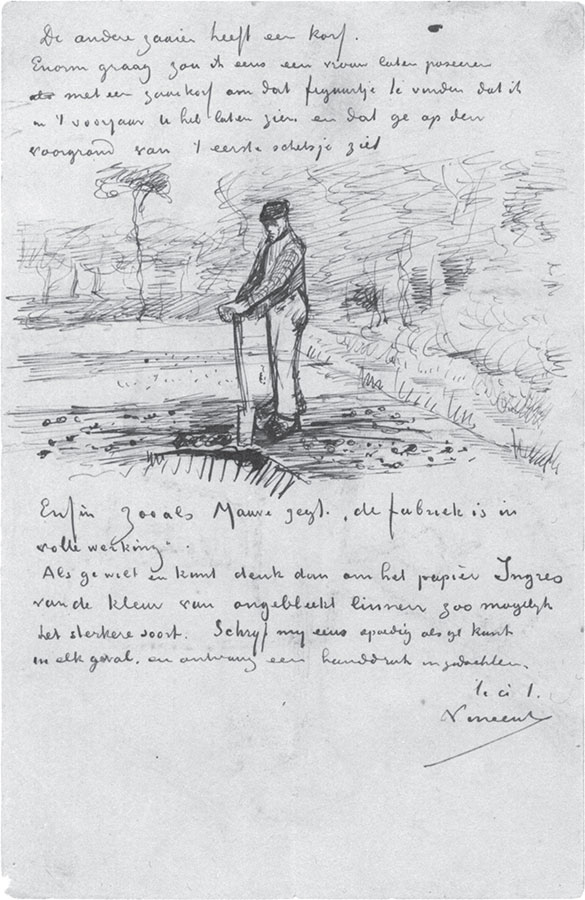 De andere zaaier heeft een korf.
Enorm graag zou ik eens een vrouw laten poseeren
met een zaaikorf om dat figuurtje te vinden dat ik
in 't voorjaar U heb laten zien en dat ge op den
voorgrond van 't eerste schetsje ziet
Enfin zooals Mauve zegt. „de fabriek is in
volle werking".
Als ge wilt en kunt denk dan om het papier Ingres
van de kleur van ongebleekt linnen zoo mogelijk
het sterkere soort. Schrijf mij eens spoedig als ge kunt
in elk geval, en ontvang een handdruk in gedachten.
t. à t.
Vincent